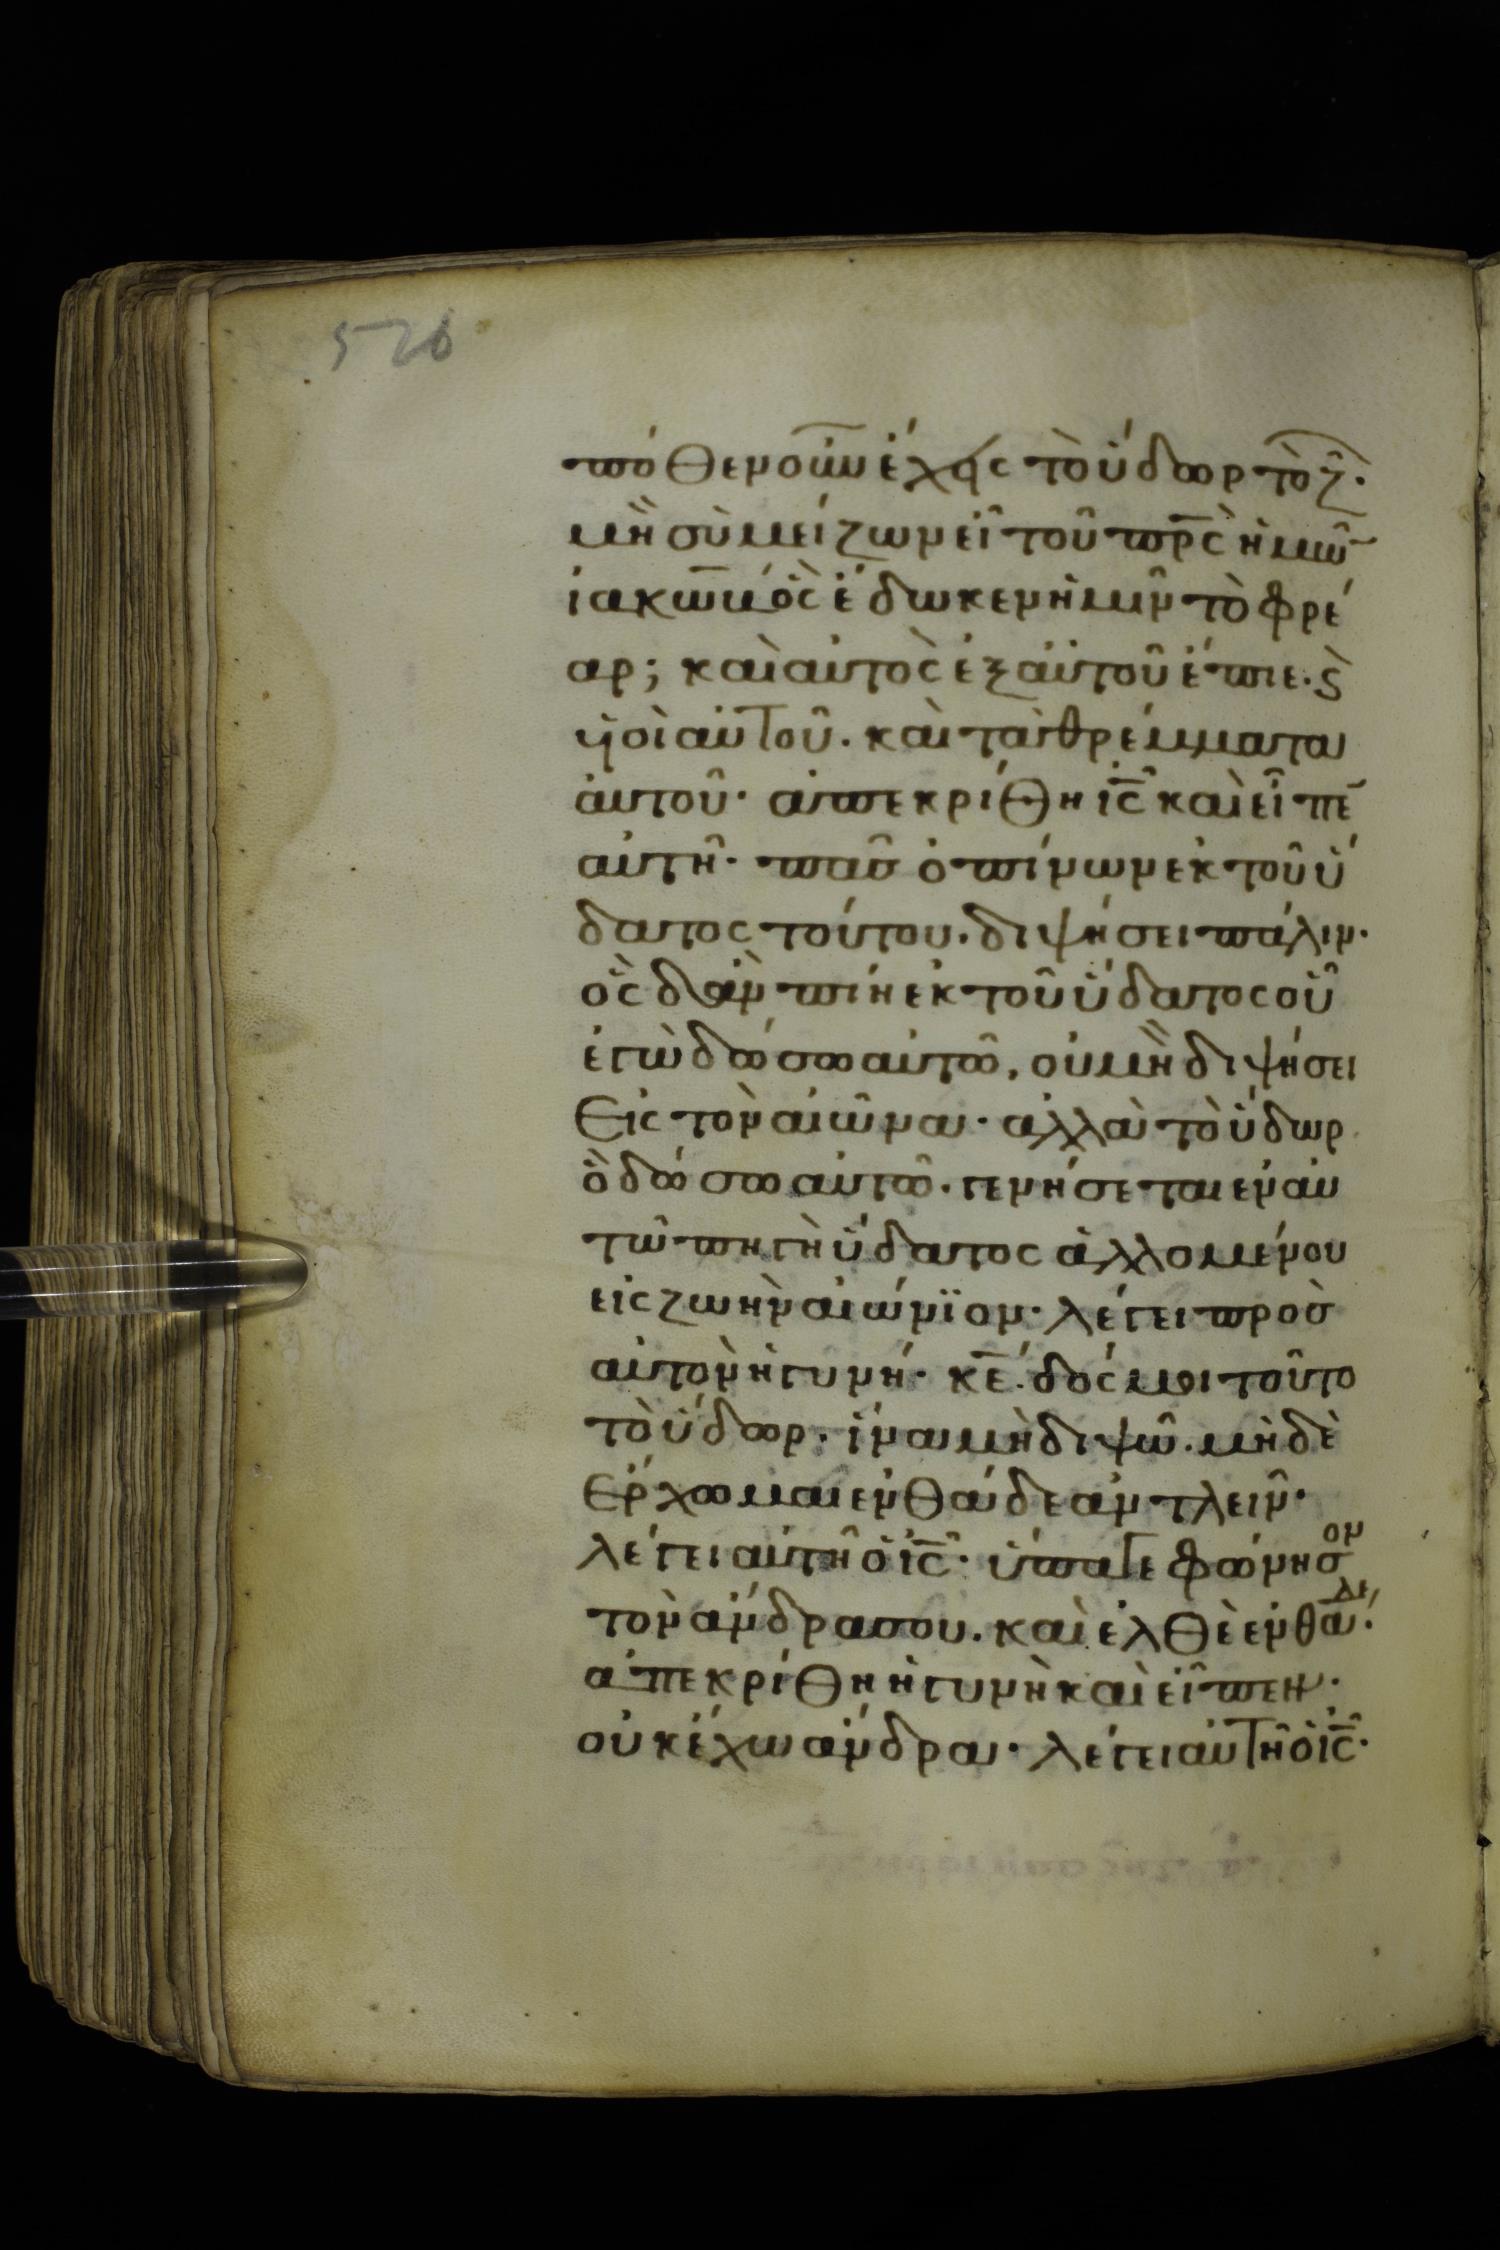 526
πόθεν οὖν ἔχεις τὸ ὕδωρ τὸ ζ̑·
μὴ σὺ μείζων εἶ τοῦ πρ̅ς ἡμῶ̅
ἰακὼβ ὃς ἔδωκεν ἡμῖν τὸ φρέ
αρ; καὶ αὐτὸς ἐξ αὐτοῦ ἔπιε. ϗ
ὑοὶ αὐτοῦ. καὶ τὰ θρέμματα
αὐτοῦ· ἀπεκρίθη ι̅ς̅ καὶ εἶπε̅
αὐτῇ· πᾶσ ὁ πίνων ἐκ τοῦ ὕ
δατος τούτου. διψήσει πάλιν·
ὃς δ' ἂν πίη ἐκ τοῦ ὕδατος οὗ
ἐγὼ δώσω αὐτῶ, οὐ μὴ διψήσει
Εἰς τὸν αἰῶνα· ἀλλὰ τὸ ὕδωρ
ὃ δώσω αὐτῶ. γενήσεται ἐν αὐ
τῶ πηγὴ ὕδατος ἁλλομένου
εἰς ζωὴν αἰώνϊον· λέγει πρὸσ
αὐτὸν ἡ γυνή· κ̅ε̅. δός μοι τοῦτο
τὸ ὕδωρ. ἵνα μὴ διψῶ. μὴδὲ
Ἔρχωμαι ἐνθάδε ἀντλεῖν·
λέγει αὐτῇ ὁ ι̅ς̅· ὕπαγε φώνησον
τὸν ἄνδρα σου. καὶ ἐλθὲ ἐνθάδε·
ἀπεκρίθη ἡ γυνὴ καὶ εἶπεν·
οὐκ ἔχω ἄνδρα· λέγει αὐτῇ ὁ ι̅ς̅·